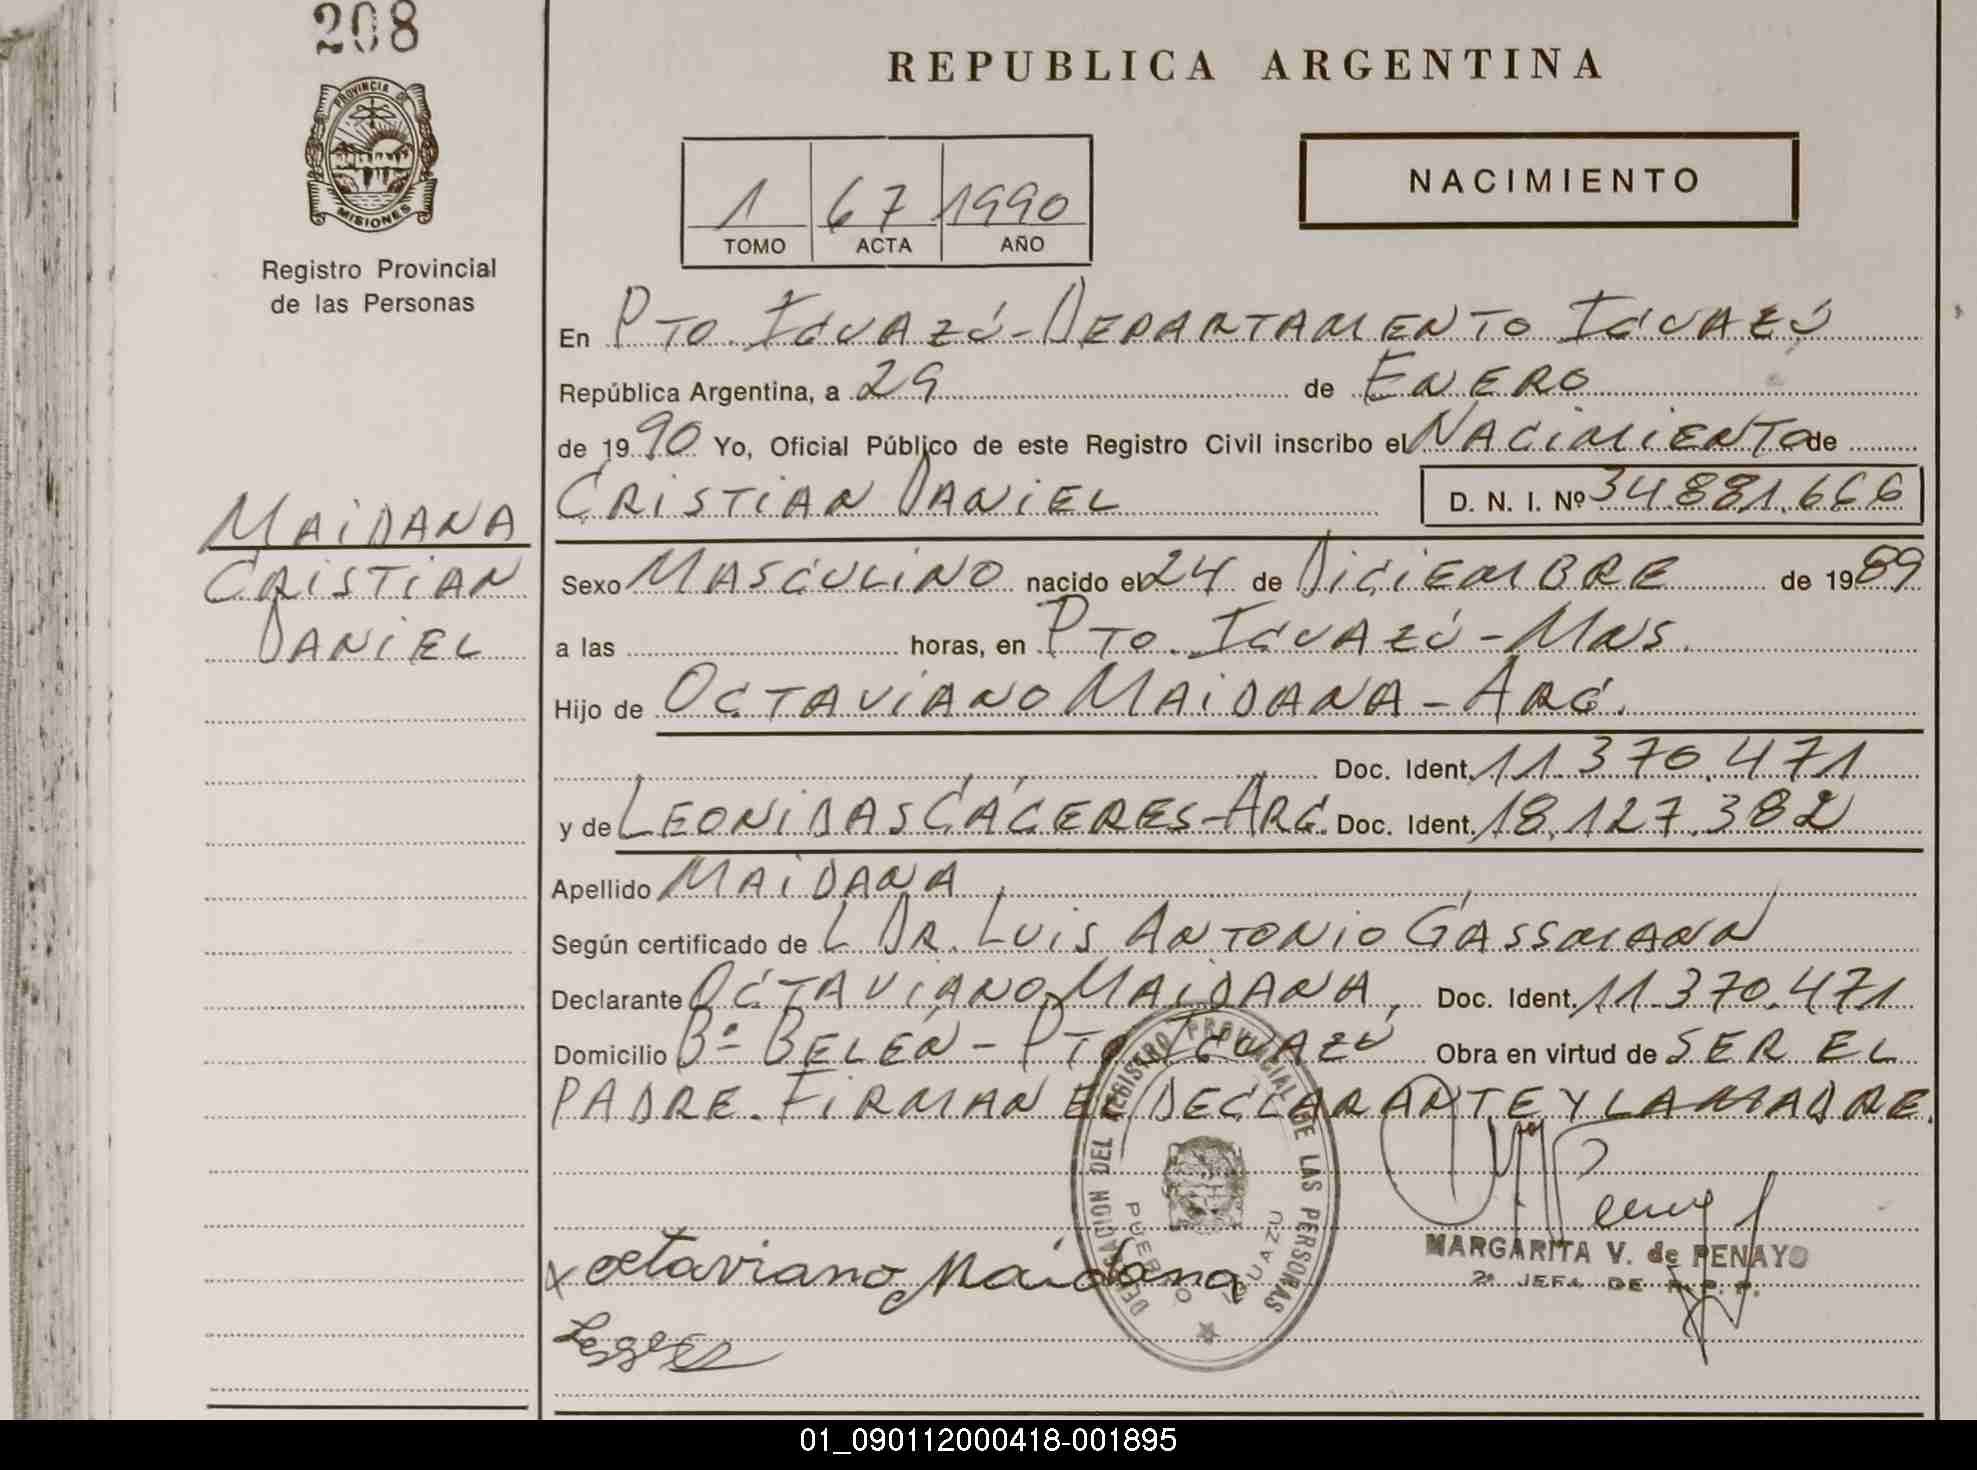 208
PROVINCIA DE
MISIONES
Registro Provincial
de las Personas
MAIDANA
CRISTIAN
DANIEL
REPUBLICA ARGENTINA
1 67 1990
TOMO ACTA AÑO
NACIMIENTO
En PTO. IGUAZÚ - DEPARTAMENTO IGUAZÚ
República Argentina, a 29 de ENERO
de 19 90 Yo, Oficial Público de este Registro Civil inscribo el NACIMIENTO de
CRISTIAN DANIEL D. N. I. Nº 34.881.666
Sexo MASCULINO nacido el 24 de DICIEMBRE de 19 89
a las horas, en PTO. IGUAZÚ - MNS.
Hijo de OCTAVIANO MAIDANA - ARG.
Doc. Ident. 11.370.471
y de LEONIDAS CÁCERES - ARG. Doc. Ident. 18.127.382
Apellido MAIDANA
Según certificado de L DR. LUIS ANTONIO GASSMANN
Declarante OCTAVIANO MAIDANA, Doc. Ident. 11.370.471
Domicilio Bº BELÉN - PTO. IGUAZÚ Obra en virtud de SER EL
PADRE. FIRMAN EL DECLARANTE Y LA MADRE.
DELEGACION DEL REGISTRO PROVINCIAL DE LAS PERSONAS
PUERTO IGUAZU
MARGARITA V. de PENAYO
2ª JEFA DE R.P.P.
x octaviano Maidana
01_090112000418-001895